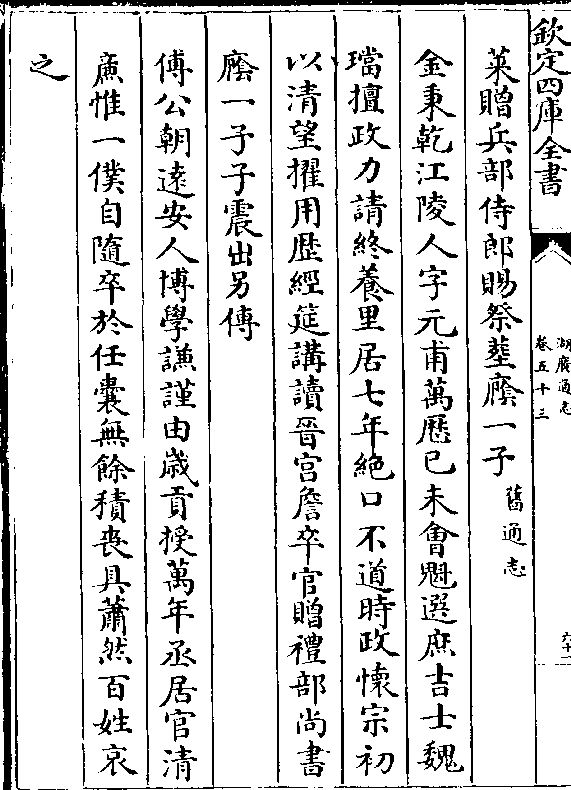 欽定四庫全書
湖廣通志
卷五十三
六十一
萊贈兵部侍郎賜祭塟廕一子舊通志
金秉乾江陵人字元甫萬歷己未會魁選庶吉士魏
璫擅政力請終養里居七年絕口不道時政懷宗初
以清望擢用歷經筵講讀晉宫詹卒官贈禮部尚書
廕一子子震出另傳
傅公朝遠安人博學謙謹由歲貢授萬年丞居官清
亷惟一僕自隨卒於任囊無餘積喪具蕭然百姓哀
之